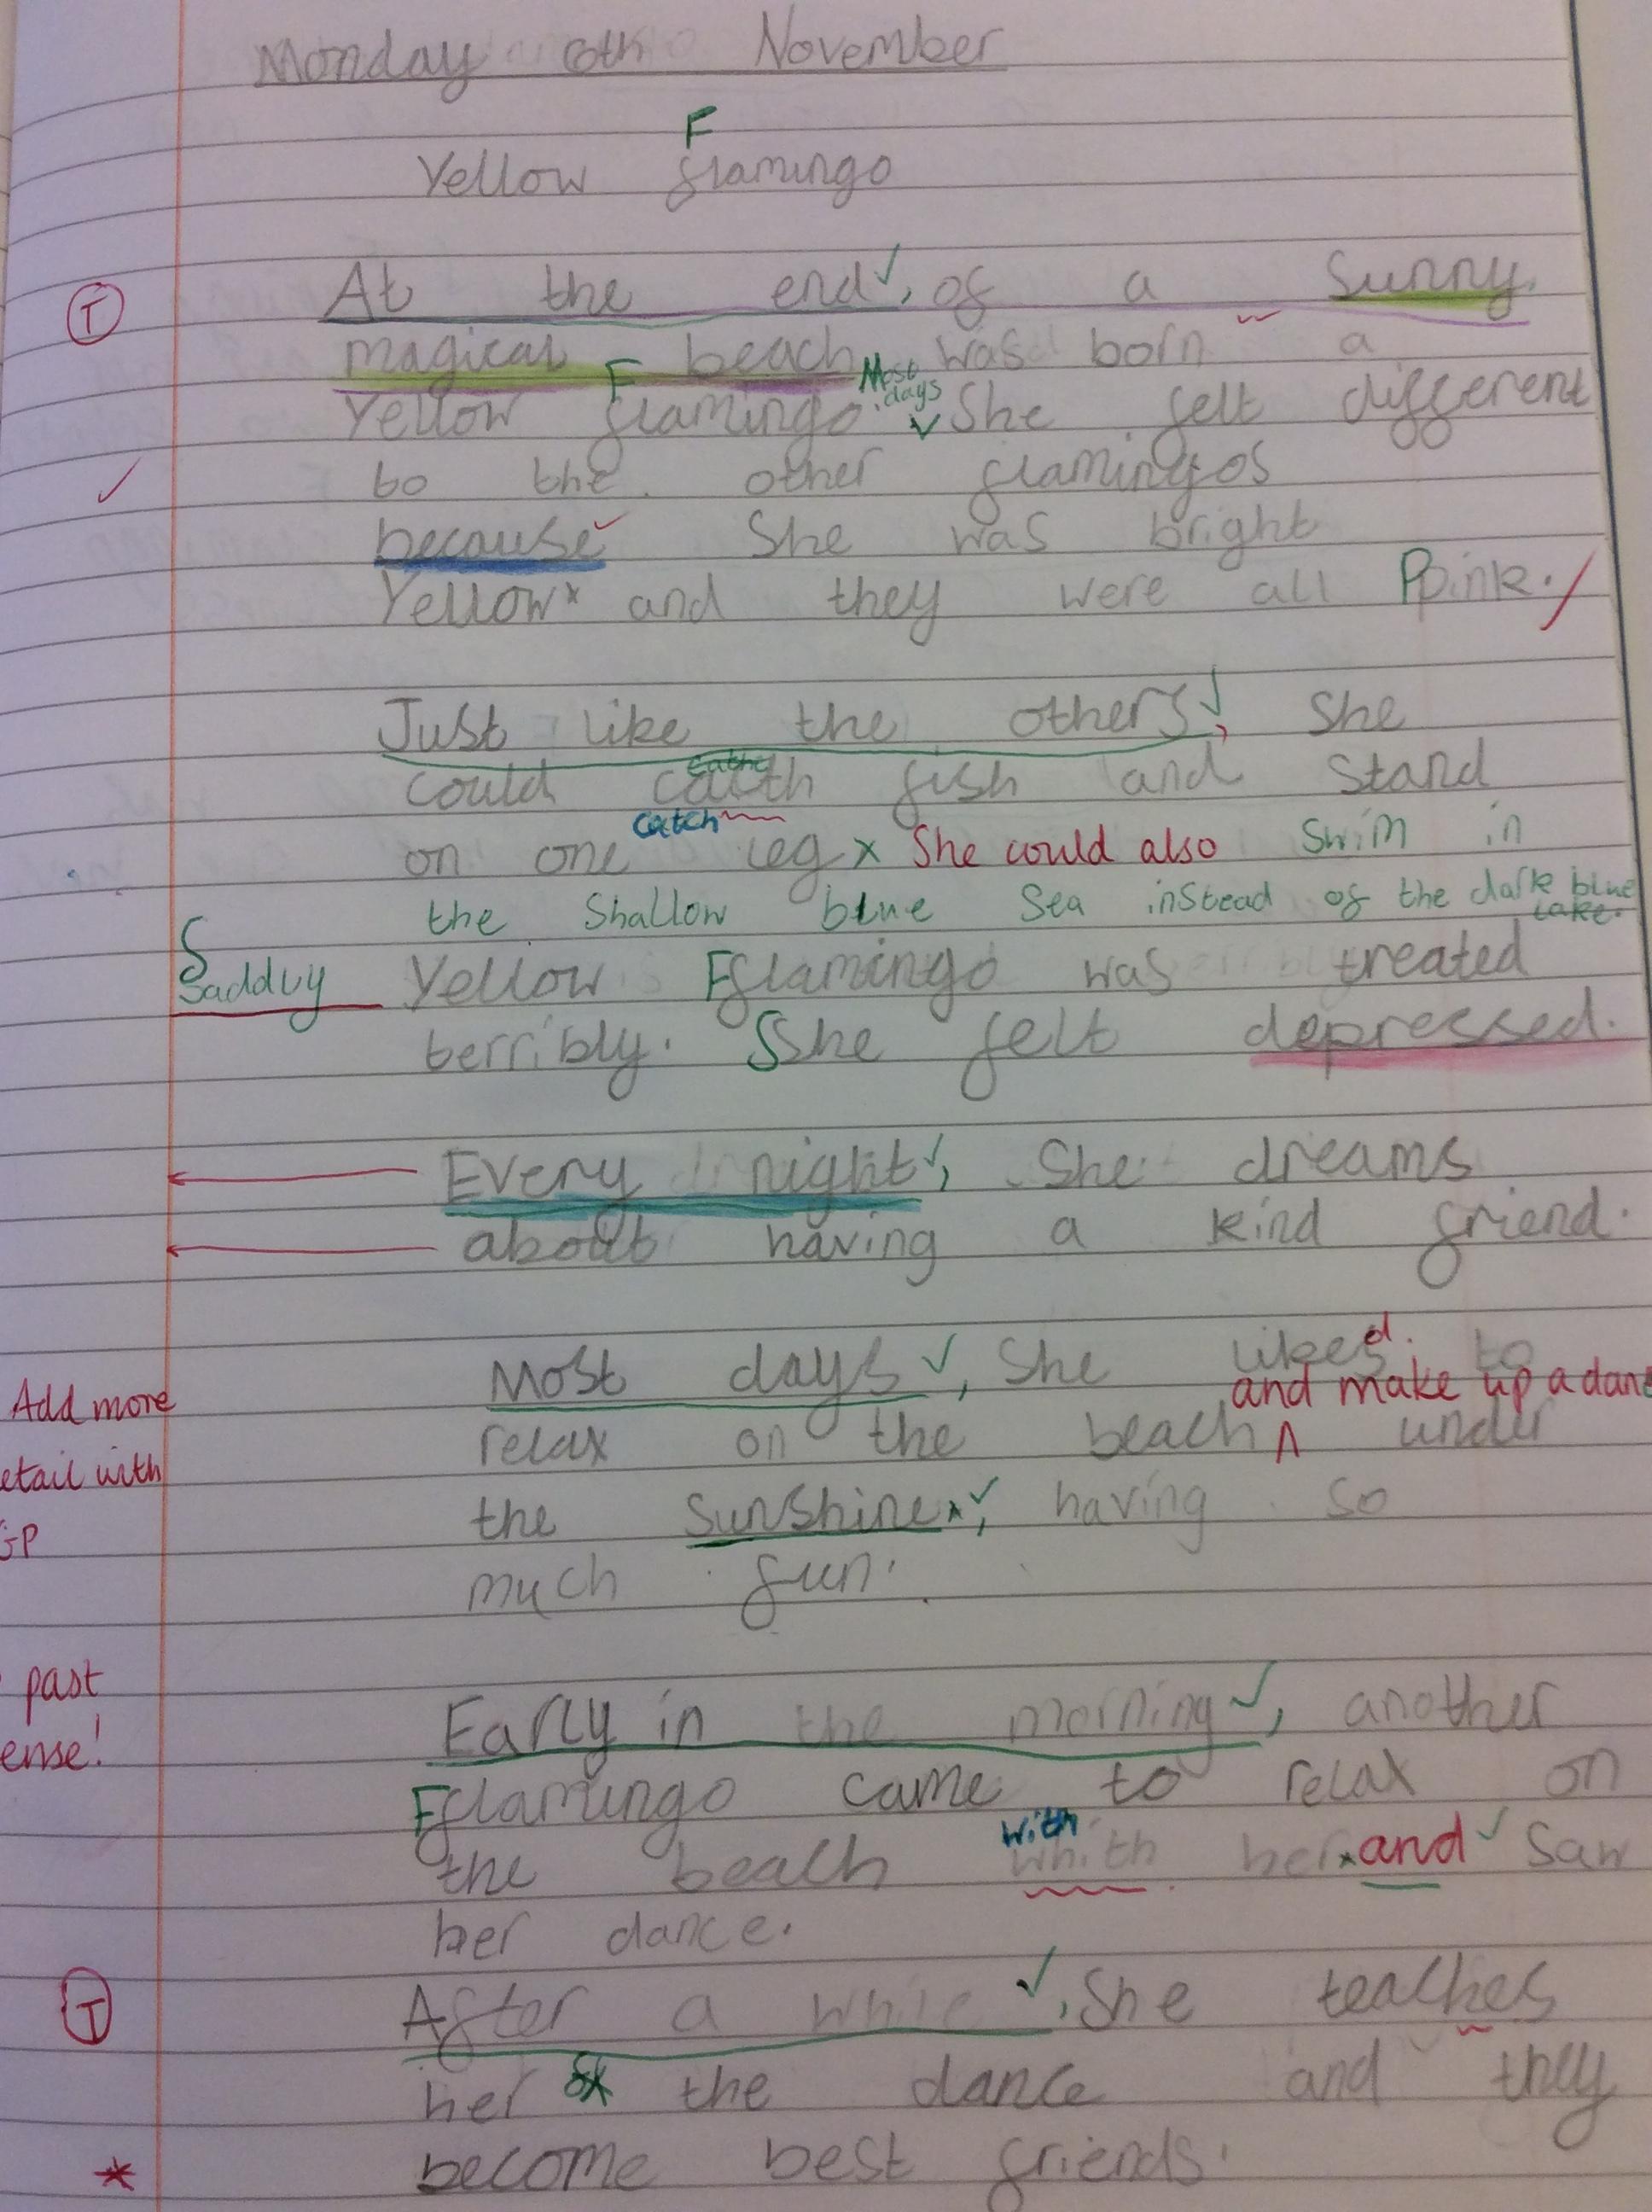 Monday 6th November
F
Yellow flamingo
T
At the end, of a sunny
magical beach was born a
F
Most days
Yellow flamingo. She felt different
to the other flamingos
because She was bright
Yellow and they were all Ppink.
Just like the others, She
eathe
could catth fish and stand
catch
on one leg x She could also Swim in
the Shallow blue Sea instead of the dark blue
lake.
Saddly Yellow Fflamingo was treated
terribly. SShe felt depressed.
Every night, She dreams
about having a kind friend.
Most days, She likesd. to
Add more
and make up a dan
relax on the beach under
etail with
the Sunshine, having so
much fun.
past
Early in the morning, another
ense!
Fflamingo came to relax on
with
the beach whith her and Saw
her dance.
T
After a while, She teaches
her the dance and they
* become best friends.